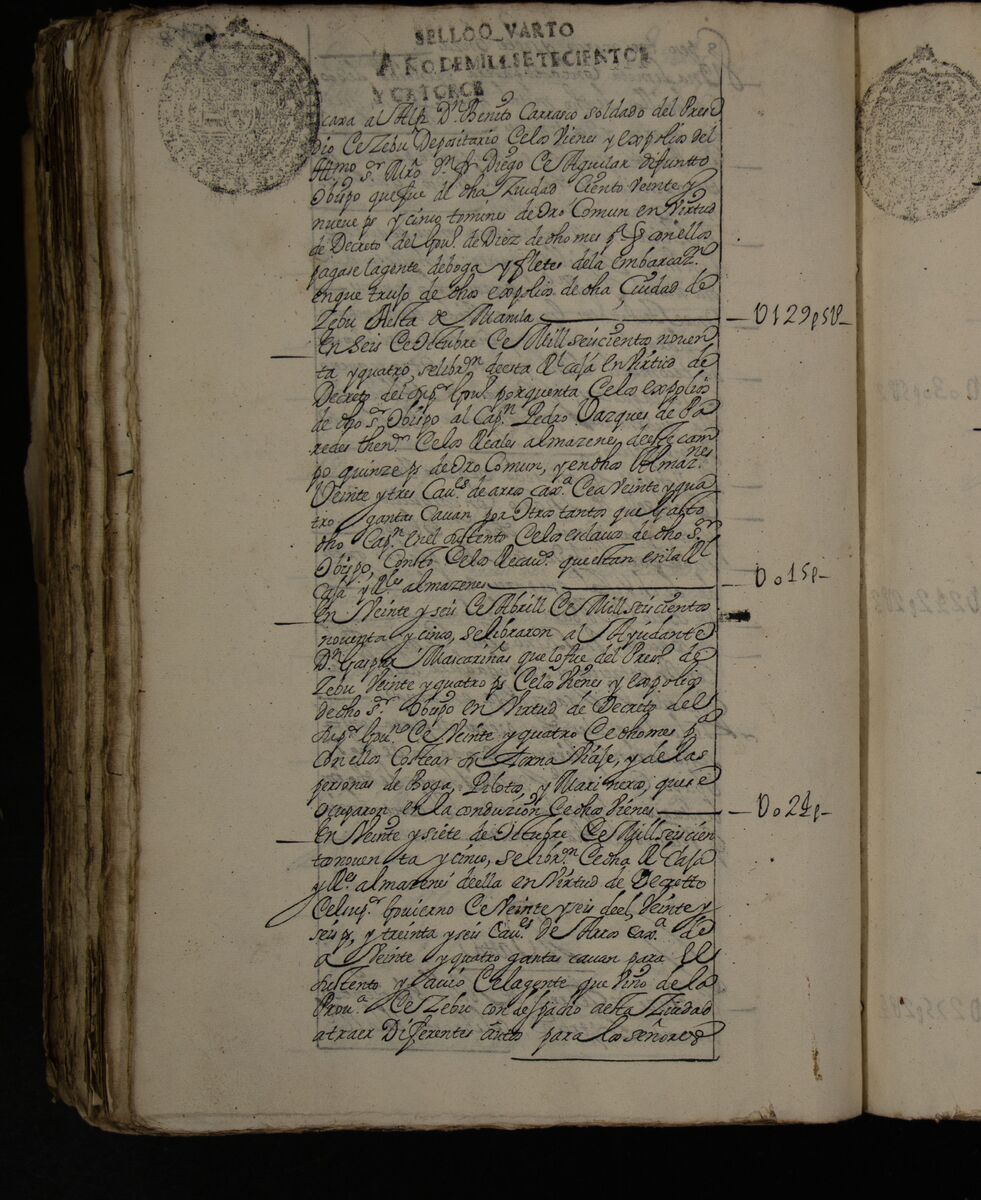 SELLOQVARTO
AÑODEMILLSETECIENTOS
YCATORCE
caxa al Alfz Dn Benito Carrasco soldado del Presi
dio de Zebu Depositario de los vienes y expolios del
Illmo Sr Mro Dn fr Diego de Aguilar difuntto
Obispo que fue de dha Ziudad Ciento Veinte y
nueve ps y cinco tomines de Oro Comun en Virtud
de Decreto del Govno de Diez de dho mes pa q con ellos
pagase la gente de boga y fletes dela embarcazn
en que trujo de dhos expolios de dha Ciudad de
Zebu a esta de Manila
U129p5U-
En seis de Octubre de Mill seiscientos noven
ta y quatro, se librn desta Rl caja en Virtud de
Decreto del Supr Govno por quenta de los expolios
de dho Sr Obispo al Capn Pedro Vazques de Pa
redes thente de los Reales almazenes de este cam
po quinze ps de Oro Comun, y en dhos Almaznes
Veinte y tres Caves de arros caxa de a Veinte y qua
tro gantas Cavan por Otros tantos que Gasto
dho Capn en el sustento de los esclavos de dho Sr
Obispo, Consto de los Recavdos que estan en la Rl
Caja y Rles almazenes
Uo15p-
En Veinte y seis de Abrill de Mill seiscientos
noventa y cinco, se libraron al Ayudante
Dn Gaspar Mascariñas que lo fue del Preso de
Zebu Veinte y quatro ps de los Vienes y expolios
de dho Sr Obispo en Virtud de Decreto del
Supr Govno de Veinte y quatro de dho mes pa
con ellos Costear su torna Viaje, y de las
personas de Boga, Piloto, y Marineros, que se
Ocuparon en la conduzion de dhos Vienes
Uo24p-
En Veinte y siete de Octubre de Mill seiscien
tos noventa y cinco, se librn de dha Rl Caja
y Rles almazenes de ella en Virtud de Decretto
del supr Govierno de Veinte y seis de el Veinte y
seis ps, y treinta y seis Caves de Arros caxa de
a Veinte y quatro gantas cavan para el
sustento y avio de la gente que Vino de la
Prova de Zebu con despacho a esta Ziudad
atraer Diferentes autos para los señores